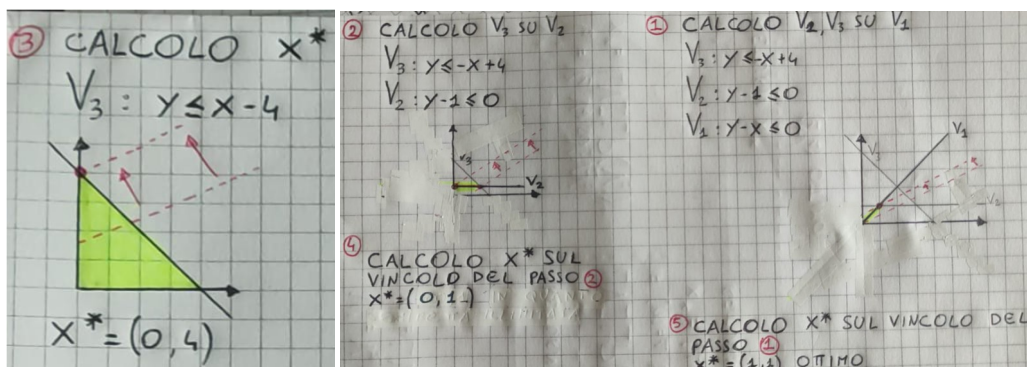 ③ CALCOLO X*
V₃ : Y ≤ X - 4
X* = (0,4)
② CALCOLO V₃ SU V₂
V₃ : Y ≤ -X+4
V₂ : Y-1 ≤ 0
V₃
V₂
④ CALCOLO X* SUL
VINCOLO DEL PASSO ②
X* = (0,1)
① CALCOLO V₂, V₃ SU V₁
V₃ : Y ≤ -X+4
V₂ : Y-1 ≤ 0
V₁ : Y-X ≤ 0
V₁
V₃
V₂
⑤ CALCOLO X* SUL VINCOLO DEL
PASSO ①
X* = (1,1) OTTIMO